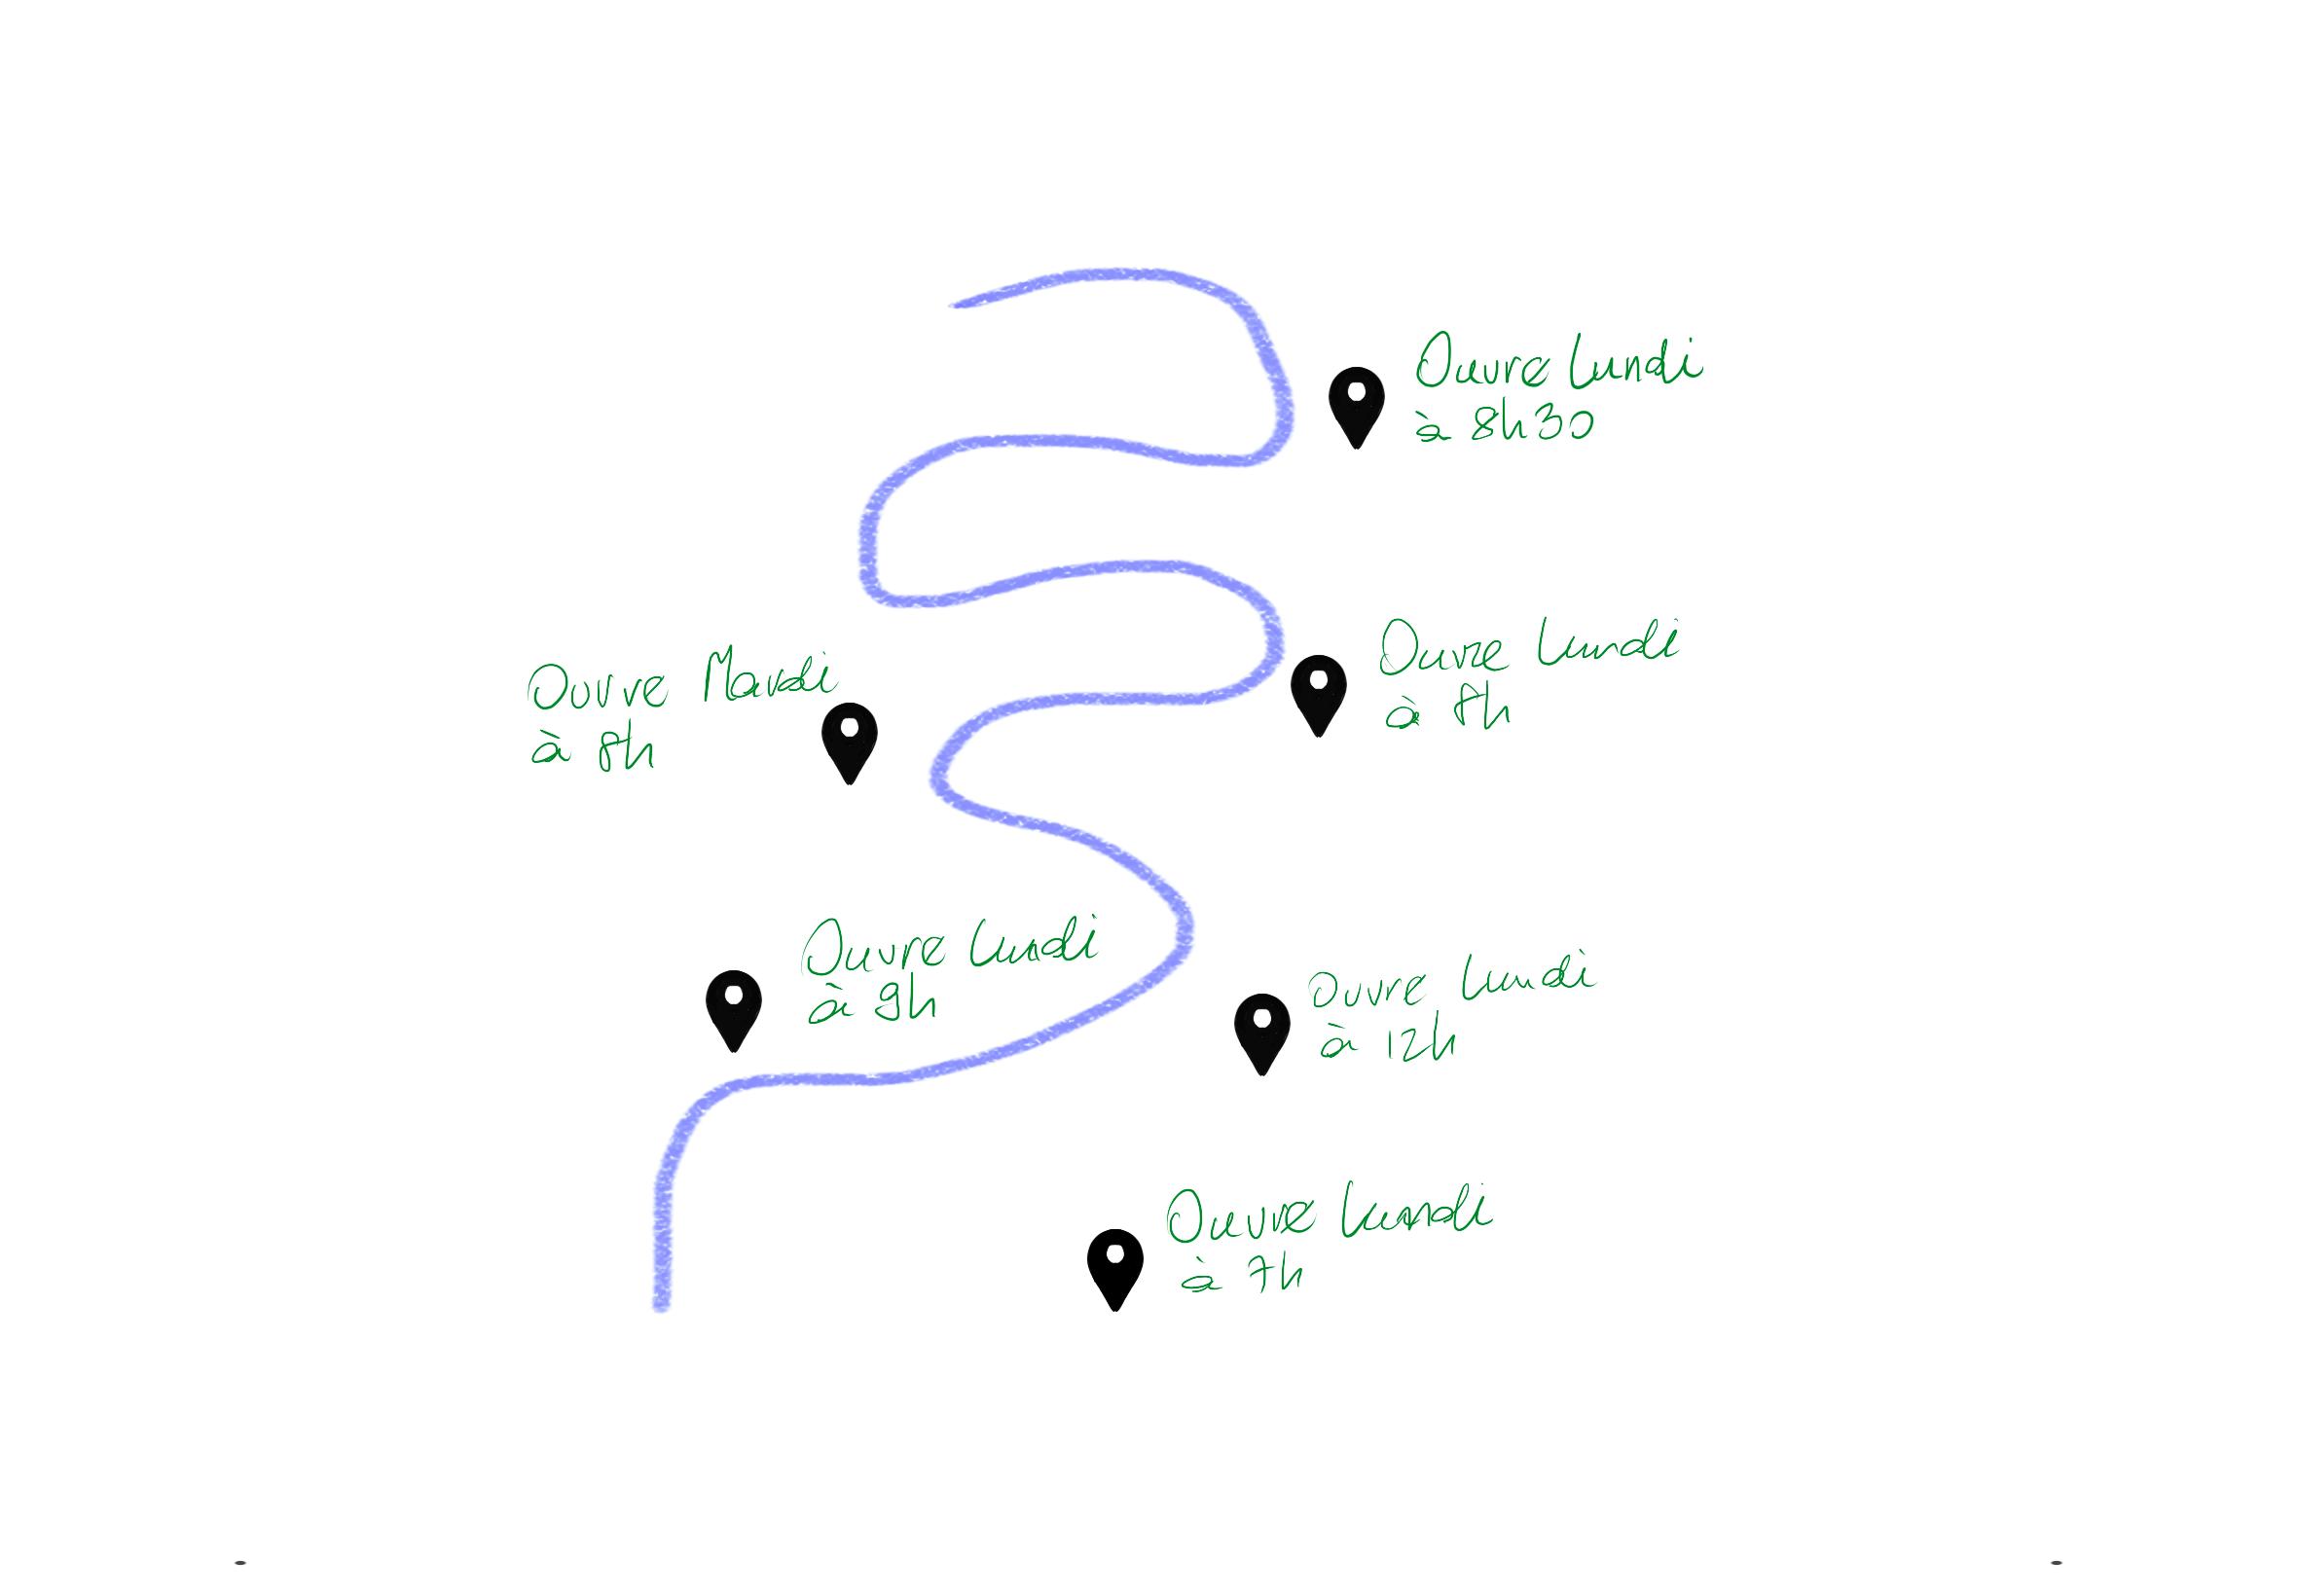 Ouvre Lundi
à 8h30
Ouvre Lundi
à 8h
Ouvre Mardi
à 8h
Ouvre Lundi
à 9h
Ouvre Lundi
à 12h
Ouvre Lundi
à 7h